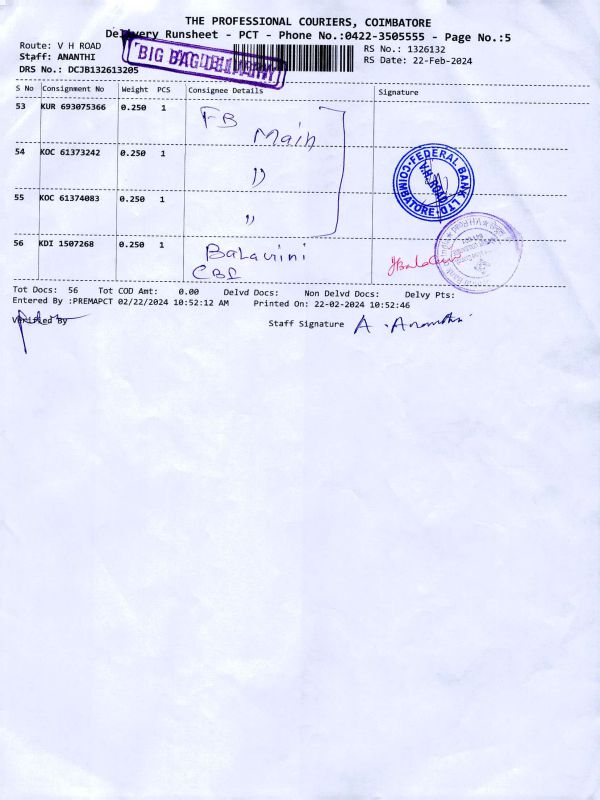 THE PROFESSIONAL COURIERS, COIMBATORE
Delivery Runsheet - PCT - Phone No.:0422-3505555 - Page No.:5
Route: V H ROAD
RS No.: 1326132
Staff: ANANTHI
RS Date: 22-Feb-2024
DRS No.: DCJB132613205
BIG BAG DELIVERY
S No Consignment No Weight PCS Consignee Details Signature
53 KUR 693075366 0.250 1 FB Main
54 KOC 61373242 0.250 1 "
FEDERAL BANK LTD. COIMBATORE V.H. ROAD
55 KOC 61374083 0.250 1 "
56 KDI 1507268 0.250 1
CBE
Tot Docs: 56 Tot COD Amt: 0.00 Delvd Docs: Non Delvd Docs: Delvy Pts:
Entered By :PREMAPCT 02/22/2024 10:52:12 AM Printed On: 22-02-2024 10:52:46
Verified By
Staff Signature A. Ananthi